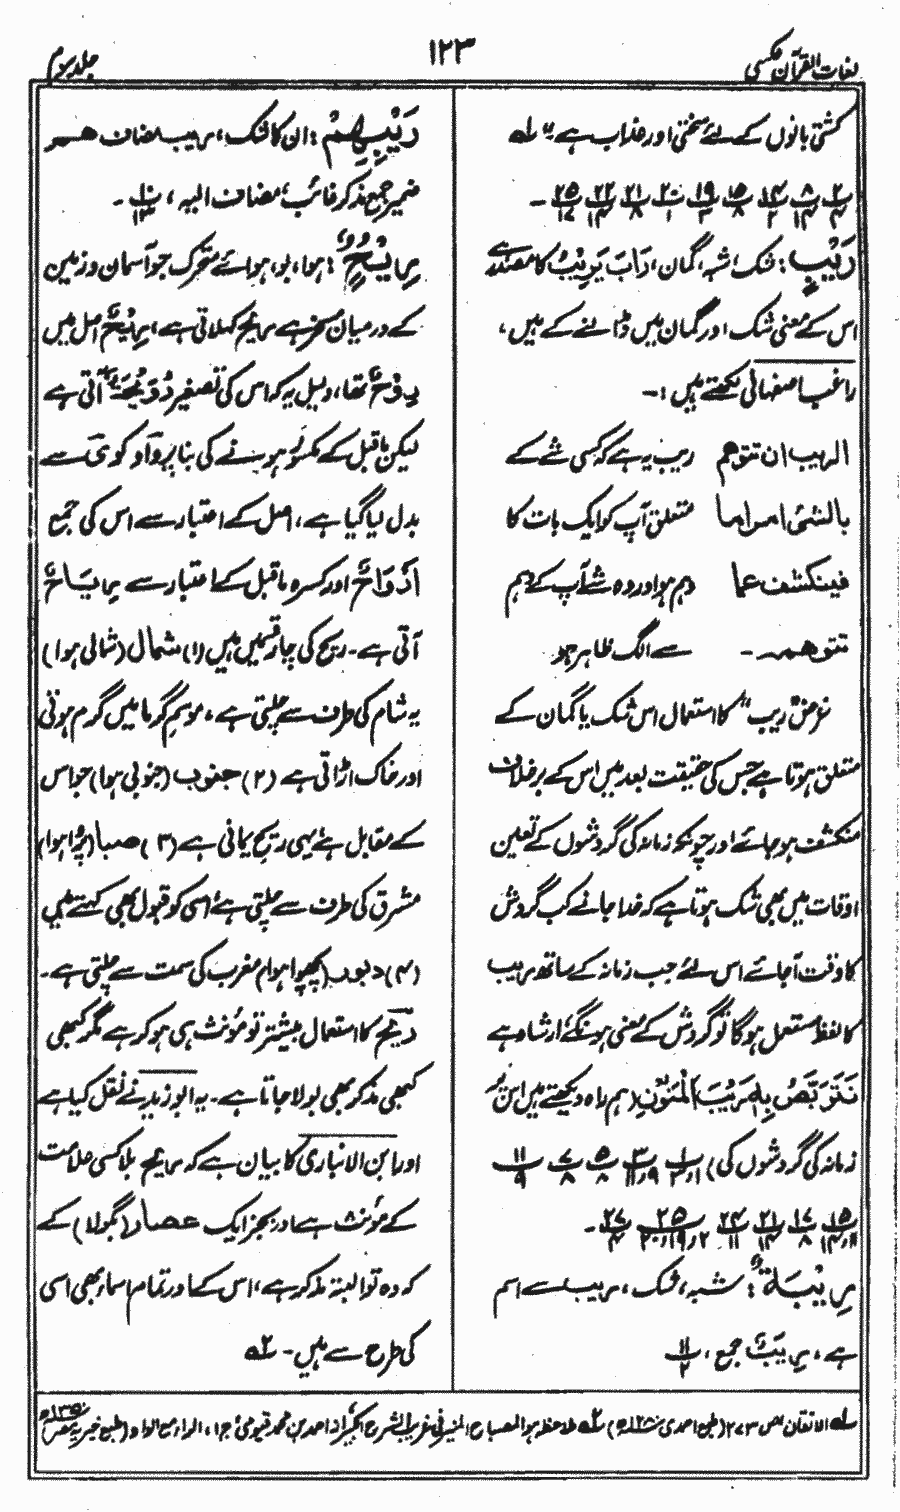 لغات القرآن عکسی
۱۲۳
جلد سوم
کشتی بانوں کے لئے سختی اور عذاب ہے" لے
رَیْب: شک، شبہ، گمان، رَابَ یَرِیْبُ کا مصدر ہے
اس کے معنی شک اور گمان میں ڈالنے کے ہیں،
راغب اصفہانی لکھتے ہیں :-
الریب ان تتوهم ریب یہ ہے کہ کسی شے کے
بالشئ امراما متعلق آپ کو ایک بات کا
فینکشف عما وہم ہو اور وہ شے آپ کے وہم
تتوهمه - سے الگ ظاہر ہو
غرض "ریب" کا استعمال اس شک یا گمان کے
متعلق ہوتا ہے جس کی حقیقت بعد میں اس کے برخلاف
منکشف ہو جائے اور چونکہ زمانہ کی گردشوں کے تعین
اوقات میں بھی شک ہوتا ہے کہ خدا جانے کب گردش
کا وقت آ جائے اس لئے جب زمانہ کے ساتھ ریب
کا لفظ مستعمل ہوگا تو گردش کے معنی ہونگے، ارشاد ہے
نَتَرَبَّصُ بِهٖ رَیْبَ الْمَنُوْنِ (ہم راہ دیکھتے ہیں اس پر
زمانہ کی گردشوں کی)
رِیْبَةٌ: شبہ، شک، ریب سے اسم
ہے، رِیَبٌ جمع،
رَیْبِهِمْ: ان کا شک، ریب مضاف هم
ضمیر جمع مذکر غائب، مضاف الیہ،
رِیْحٌ: ہوا، بو، ہوائے متحرک جو آسمان و زمین
کے درمیان مسخر ہے ریح کہلاتی ہے، رِیْحٌ اصل میں
رِوْحٌ تھا، دلیل یہ کہ اس کی تصغیر رُوَیْحَةٌ آتی ہے
لیکن ماقبل کے مکسور ہونے کی بنا پر واو کو ی سے
بدل لیا گیا ہے، اصل کے اعتبار سے اس کی جمع
اَرْوَاحٌ اور کسرہ ماقبل کے اعتبار سے رِیَاحٌ
آتی ہے۔ ریح کی چار قسمیں ہیں (۱) شمال (شمالی ہوا)
یہ شام کی طرف سے چلتی ہے، موسم گرما میں گرم ہوتی
اور خاک اڑاتی ہے (۲) جنوب (جنوبی ہوا) جو اس
کے مقابل ہے یہی ریح یمانی ہے (۳) صبا (پُروا ہوا)
مشرق کی طرف سے چلتی ہے، اسی کو قبول بھی کہتے ہیں
(۴) دبور (پچھوا ہوا) مغرب کی سمت سے چلتی ہے۔
ریح کا استعمال بیشتر تو مؤنث ہی ہو کر ہے مگر کبھی
کبھی مذکر بھی بولا جاتا ہے۔ یہ ابو زید نے نقل کیا ہے
اور ابن الانباری کا بیان ہے کہ ریح بلا کسی علامت
کے مؤنث ہے اور بجز ایک عصار (بگولا) کے
کہ وہ تو البتہ مذکر ہے، اس کے اور تمام اسماء بھی اسی
کی طرح سے ہیں۔
لے الاتقان ص ۲۷۳ (طبع احمدی) ملاحظہ ہو المصباح المنیر فی غریب الشرح الکبیر از احمد بن محمد فیومی ج ۱، الراء مع الواو (طبع خیریہ مصر)